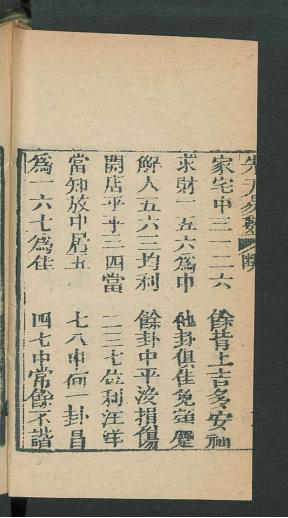 先天易數
家宅中三一二六 餘皆上吉多安
求財一五六為中 他卦俱佳免
解人五六三均利 餘卦中平沒損傷
開店平平三四當 二三七位利汪洋
當知放中居五 七八中何一卦昌
為一六七為佳 四七中常餘不諧